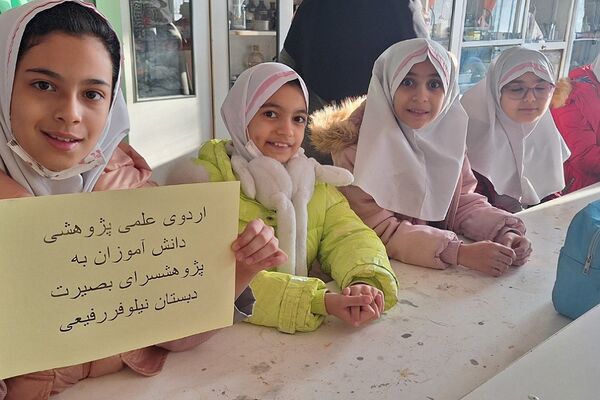 اردوی علمی پژوهشی
دانش آموزان به
پژوهشسرای بصیرت
دبستان نیلوفررفیعی